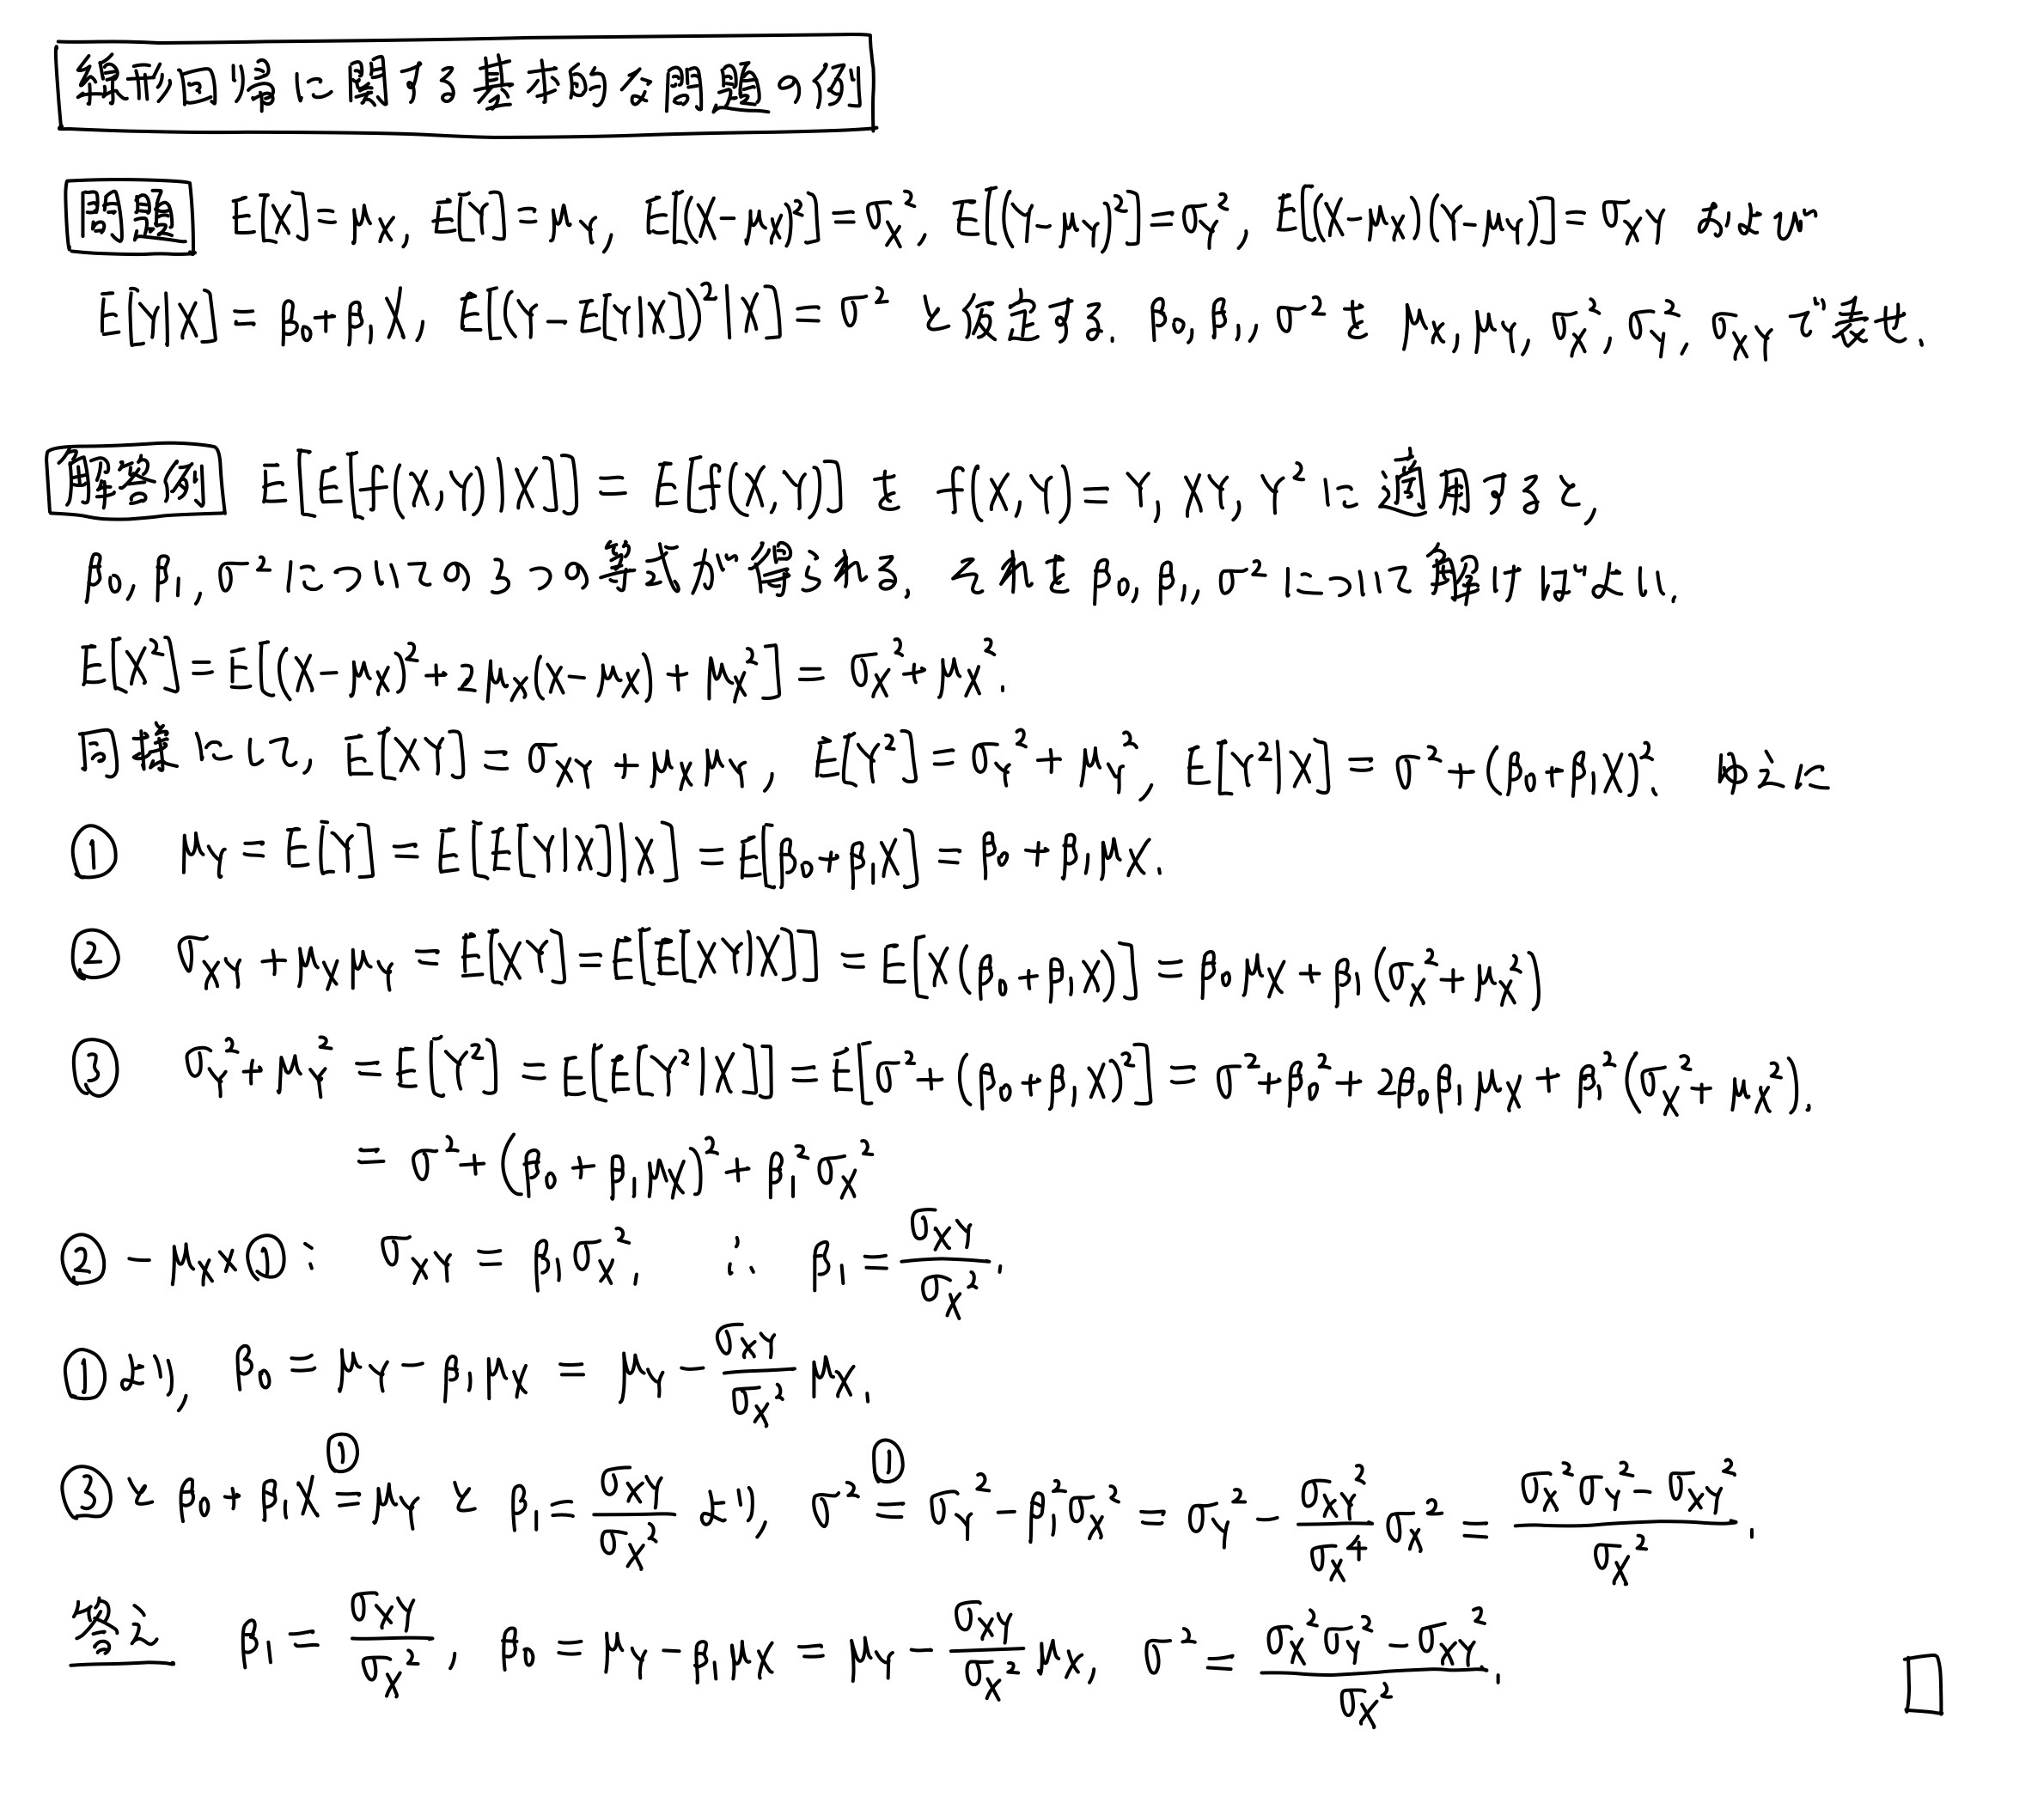 線形回帰に関する基本的な問題の例
問題 E[X] = μ_X, E[Y] = μ_Y, E[(X-μ_X)²] = σ_X², E[(Y-μ_Y)²] = σ_Y², E[(X-μ_X)(Y-μ_Y)] = σ_XY および
E[Y|X] = β₀+β₁X, E[(Y-E[Y|X])²|X] = σ² と仮定する. β₀, β₁, σ² を μ_X, μ_Y, σ_X², σ_Y², σ_XY で表せ.
解答例 E[E[f(X,Y)|X]] = E[f(X,Y)] を f(X,Y) = Y, XY, Y² に適用すると,
β₀, β₁, σ² についての3つの等式が得られる. それを β₀, β₁, σ² について解けばよい.
E[X²] = E[(X-μ_X)²+2μ_X(X-μ_X)+μ_X²] = σ_X²+μ_X².
同様にして, E[XY] = σ_XY+μ_Xμ_Y, E[Y²] = σ_Y²+μ_Y², E[Y²|X] = σ²+(β₀+β₁X)². ゆえに
① μ_Y = E[Y] = E[E[Y|X]|X] = E[β₀+β₁X] = β₀+β₁μ_X.
② σ_XY+μ_Xμ_Y = E[XY] = E[E[XY|X]] = E[X(β₀+β₁X)] = β₀μ_X+β₁(σ_X²+μ_X²)
③ σ_Y²+μ_Y² = E[Y²] = E[E[Y²|X]] = E[σ²+(β₀+β₁X)²] = σ²+β₀²+2β₀β₁μ_X+β₁²(σ_X²+μ_X²).
= σ²+(β₀+β₁μ_X)²+β₁²σ_X²
②-μ_X×①: σ_XY = β₁σ_X². ∴ β₁ = σ_XY/σ_X².
①より, β₀ = μ_Y-β₁μ_X = μ_Y-(σ_XY/σ_X²)μ_X.
③と β₀+β₁X ①= μ_Y と β₁ = σ_XY/σ_X² より, σ² ①= σ_Y²-β₁²σ_X² = σ_Y²-(σ_XY²/σ_X⁴)σ_X² = (σ_X²σ_Y²-σ_XY²)/σ_X².
答え β₁ = σ_XY/σ_X², β₀ = μ_Y-β₁μ_X = μ_Y-(σ_XY/σ_X²)μ_X, σ² = (σ_X²σ_Y²-σ_XY²)/σ_X². □